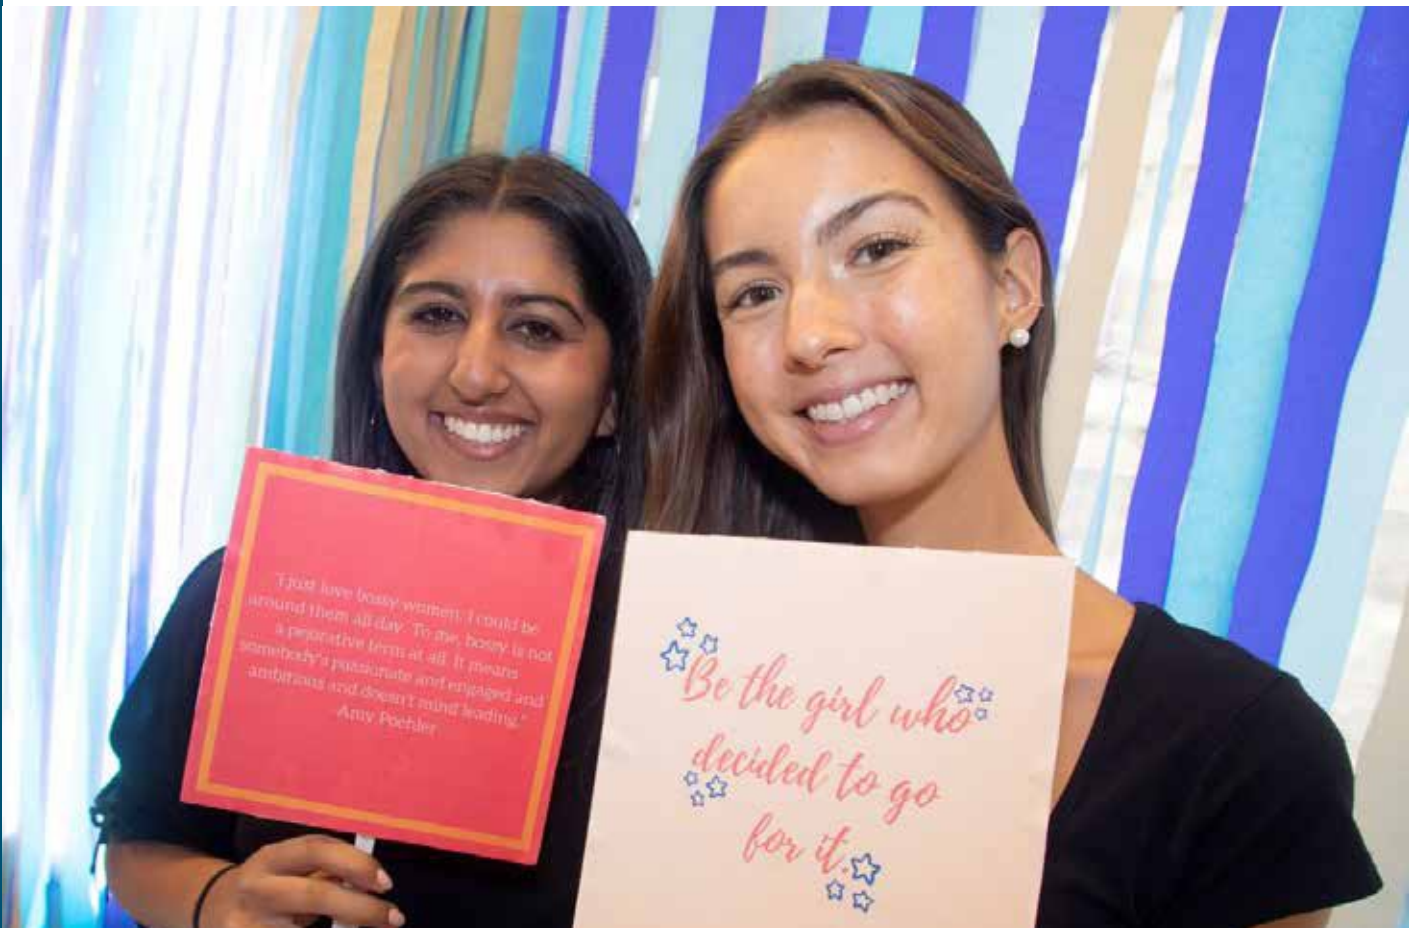 "I just love bossy women. I could be
around them all day. To me, bossy is not
a pejorative term at all. It means
somebody's passionate and engaged and
ambitious and doesn't mind leading."
-Amy Poehler
Be the girl who
decided to go
for it.